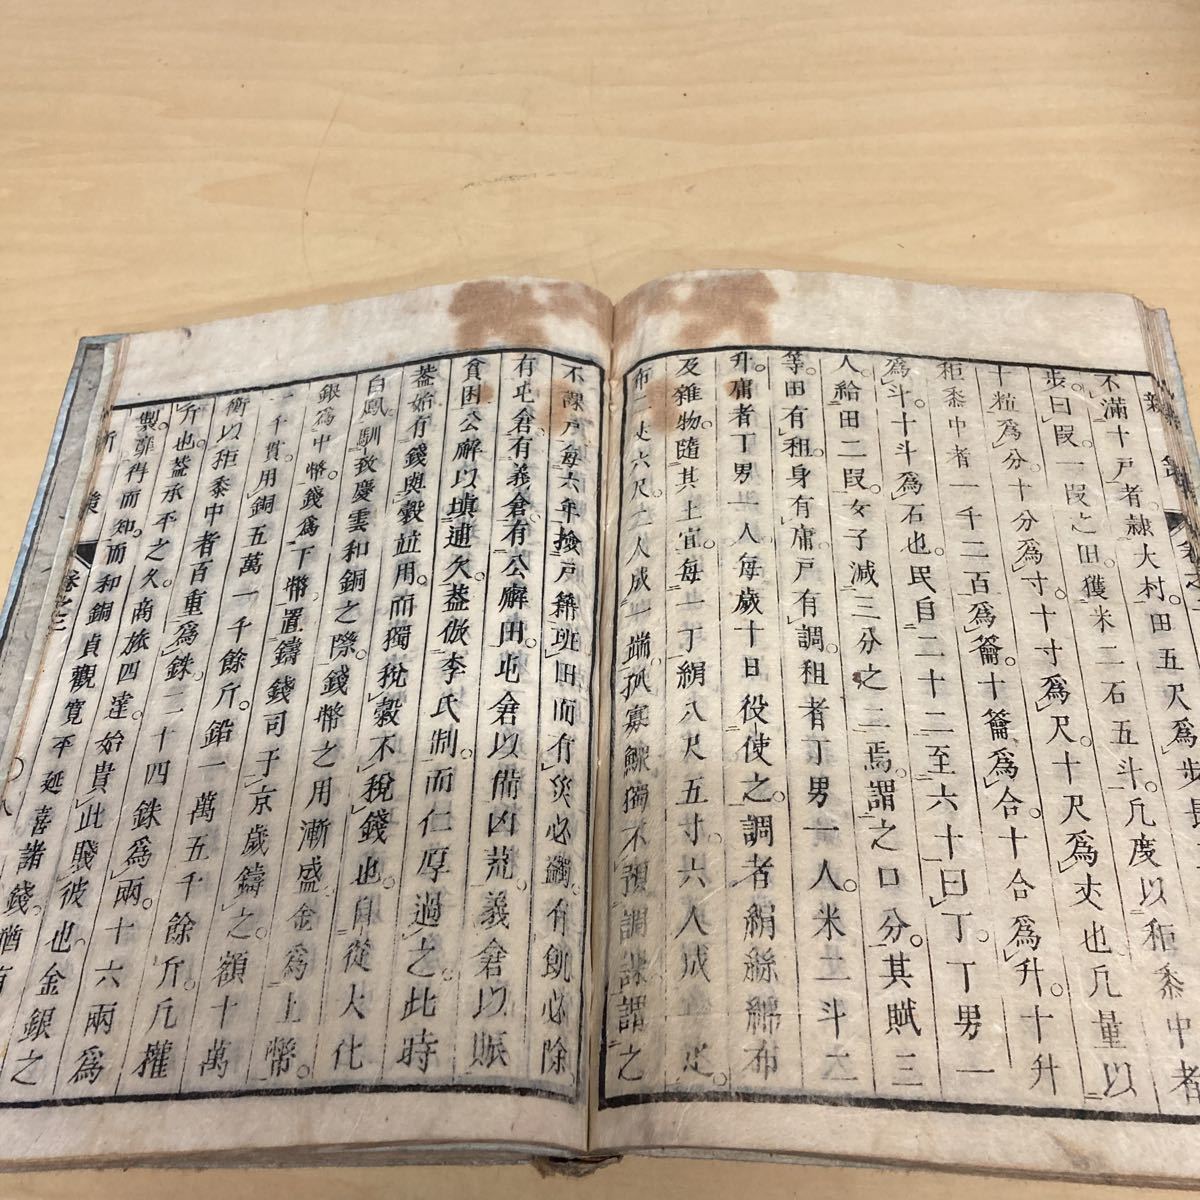 不滿十戸者。隸大村。田五尺爲歩。長
歩曰段一段之田。獲米二石五斗。凡度以秬黍中者
十粒爲分。十分爲寸。十寸爲尺。十尺爲丈也凡量以
秬黍中者一千二百爲籥。十籥爲合。十合爲升。十升
爲斗。十斗爲石也。民自二十二至六十曰丁。丁男一
人。給田二段。女子減三分之二焉。謂之口分。其賦三
等。田有租。身有庸。戸有調。租者丁男一人。米二斗二
升。庸者丁男一人每歳十日役使之。調者絹絲綿布
及雜物。隨其土宜。每一丁絹八尺五寸。六人成一疋。
布二丈六尺。二人成一端。孤寡鰥獨不預調課謂之
不課戸每六年撿戸籍班田而有災必蠲。有飢必除。
有屯倉。有義倉。有公廨田。屯倉以備凶荒。義倉以賑
貧困。公廨以填逋欠。蓋倣李氏制。而仁厚過之。此時
葢始有錢與穀並用。而獨税穀不税錢也。自從大化
白鳳。馴致慶雲和銅之際。錢幣之用漸盛。金爲上幣。
銀爲中幣。錢爲下幣。置鑄錢司于京歳鑄之。額十萬
一千貫。用銅五萬一千餘斤。鉛一萬五千餘斤。凡權
衡以秬黍中者百重爲銖。二十四銖爲兩。十六兩爲
斤也。葢承平之久。商旅四達。始貴此賤彼也。金銀之
製。靡得而知。而和銅貞觀寛平延喜諸錢。猶有
卷之三